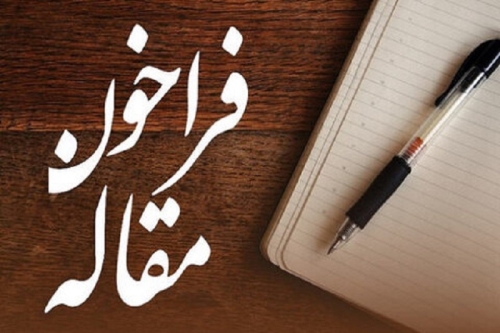 فراخون
مقاله